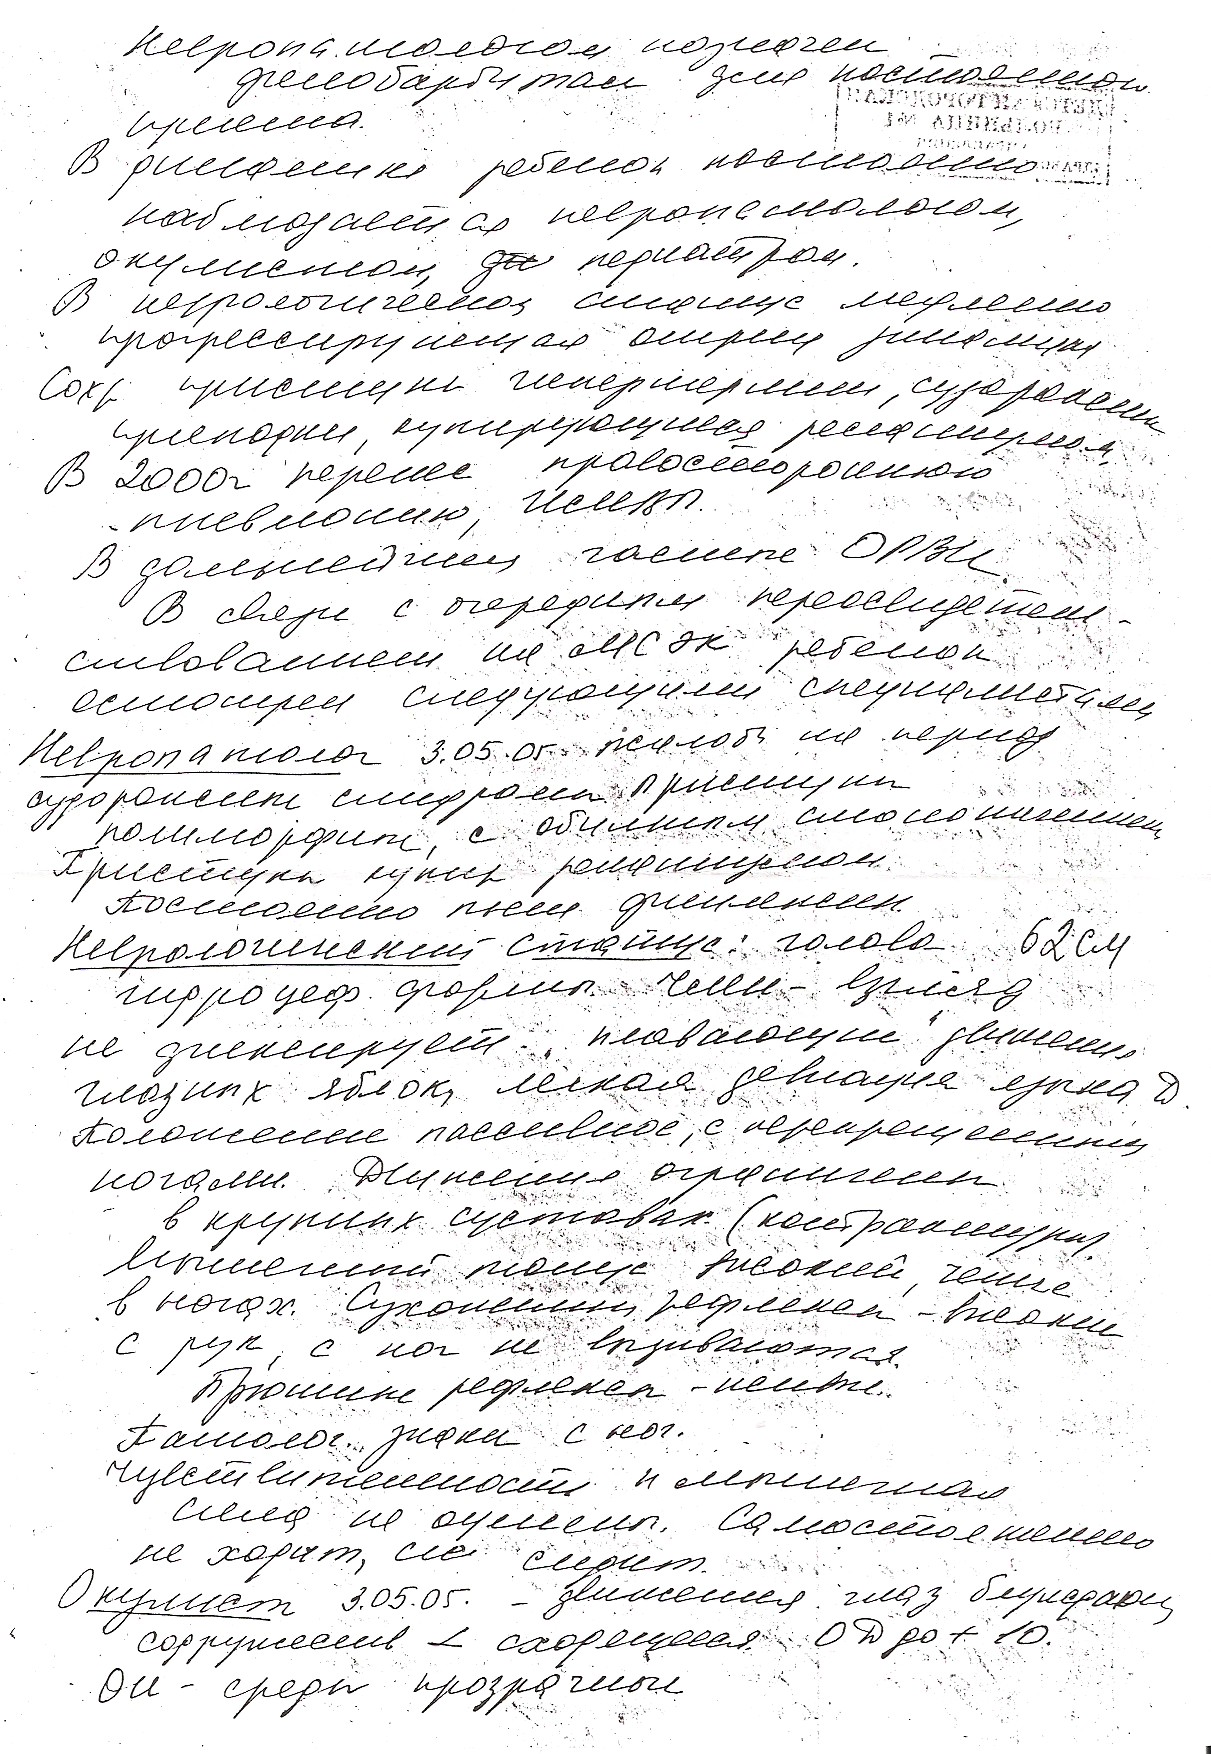 Невропатологом назначен
фенобарбитал для постоянного
приема.
В динамике ребенок постоянно
наблюдается невропатологом,
окулистом, педиатром.
В неврологическом статусе медленно
прогрессирующая
Сохр. приступы гипертермии, судорожные
припадки, купирующиеся реланиумом,
В 2000г перенес правостороннюю
пневмонию,
В дальнейшем частые ОРВИ.
В связи с очередным переосвидетель-
ствованием на МСЭК ребенок
осмотрен следующими специалистами
Невропатолог 3.05.05г. жалобы на
судорожный синдром приступы
полиморфные, с обильным слюнотечением
Приступы купир реланиумом.
Постоянно пьет
Неврологический статус: голова 62см
гидроцеф. формы. ЧМН - взгляд
не фиксирует. "плавающие" движения
глазных яблок, легкая девиация языка D
Положение пассивное, с перекрещенными
ногами. Движения ограничены
в крупных суставах (контрактуры)
Мышечный тонус высокий,
в ногах. Сухожильные рефлексы - высокие
с рук, с ног не вызываются.
Брюшные рефлексы -
Патолог. знаки с ног.
Чувствительность и мышечная
сила не оценены. Самостоятельно
не ходит, не сидит.
Окулист 3.05.05г. - движения глаз
содружеств L сходящееся OD до + 10.
ОИ - среды прозрачные